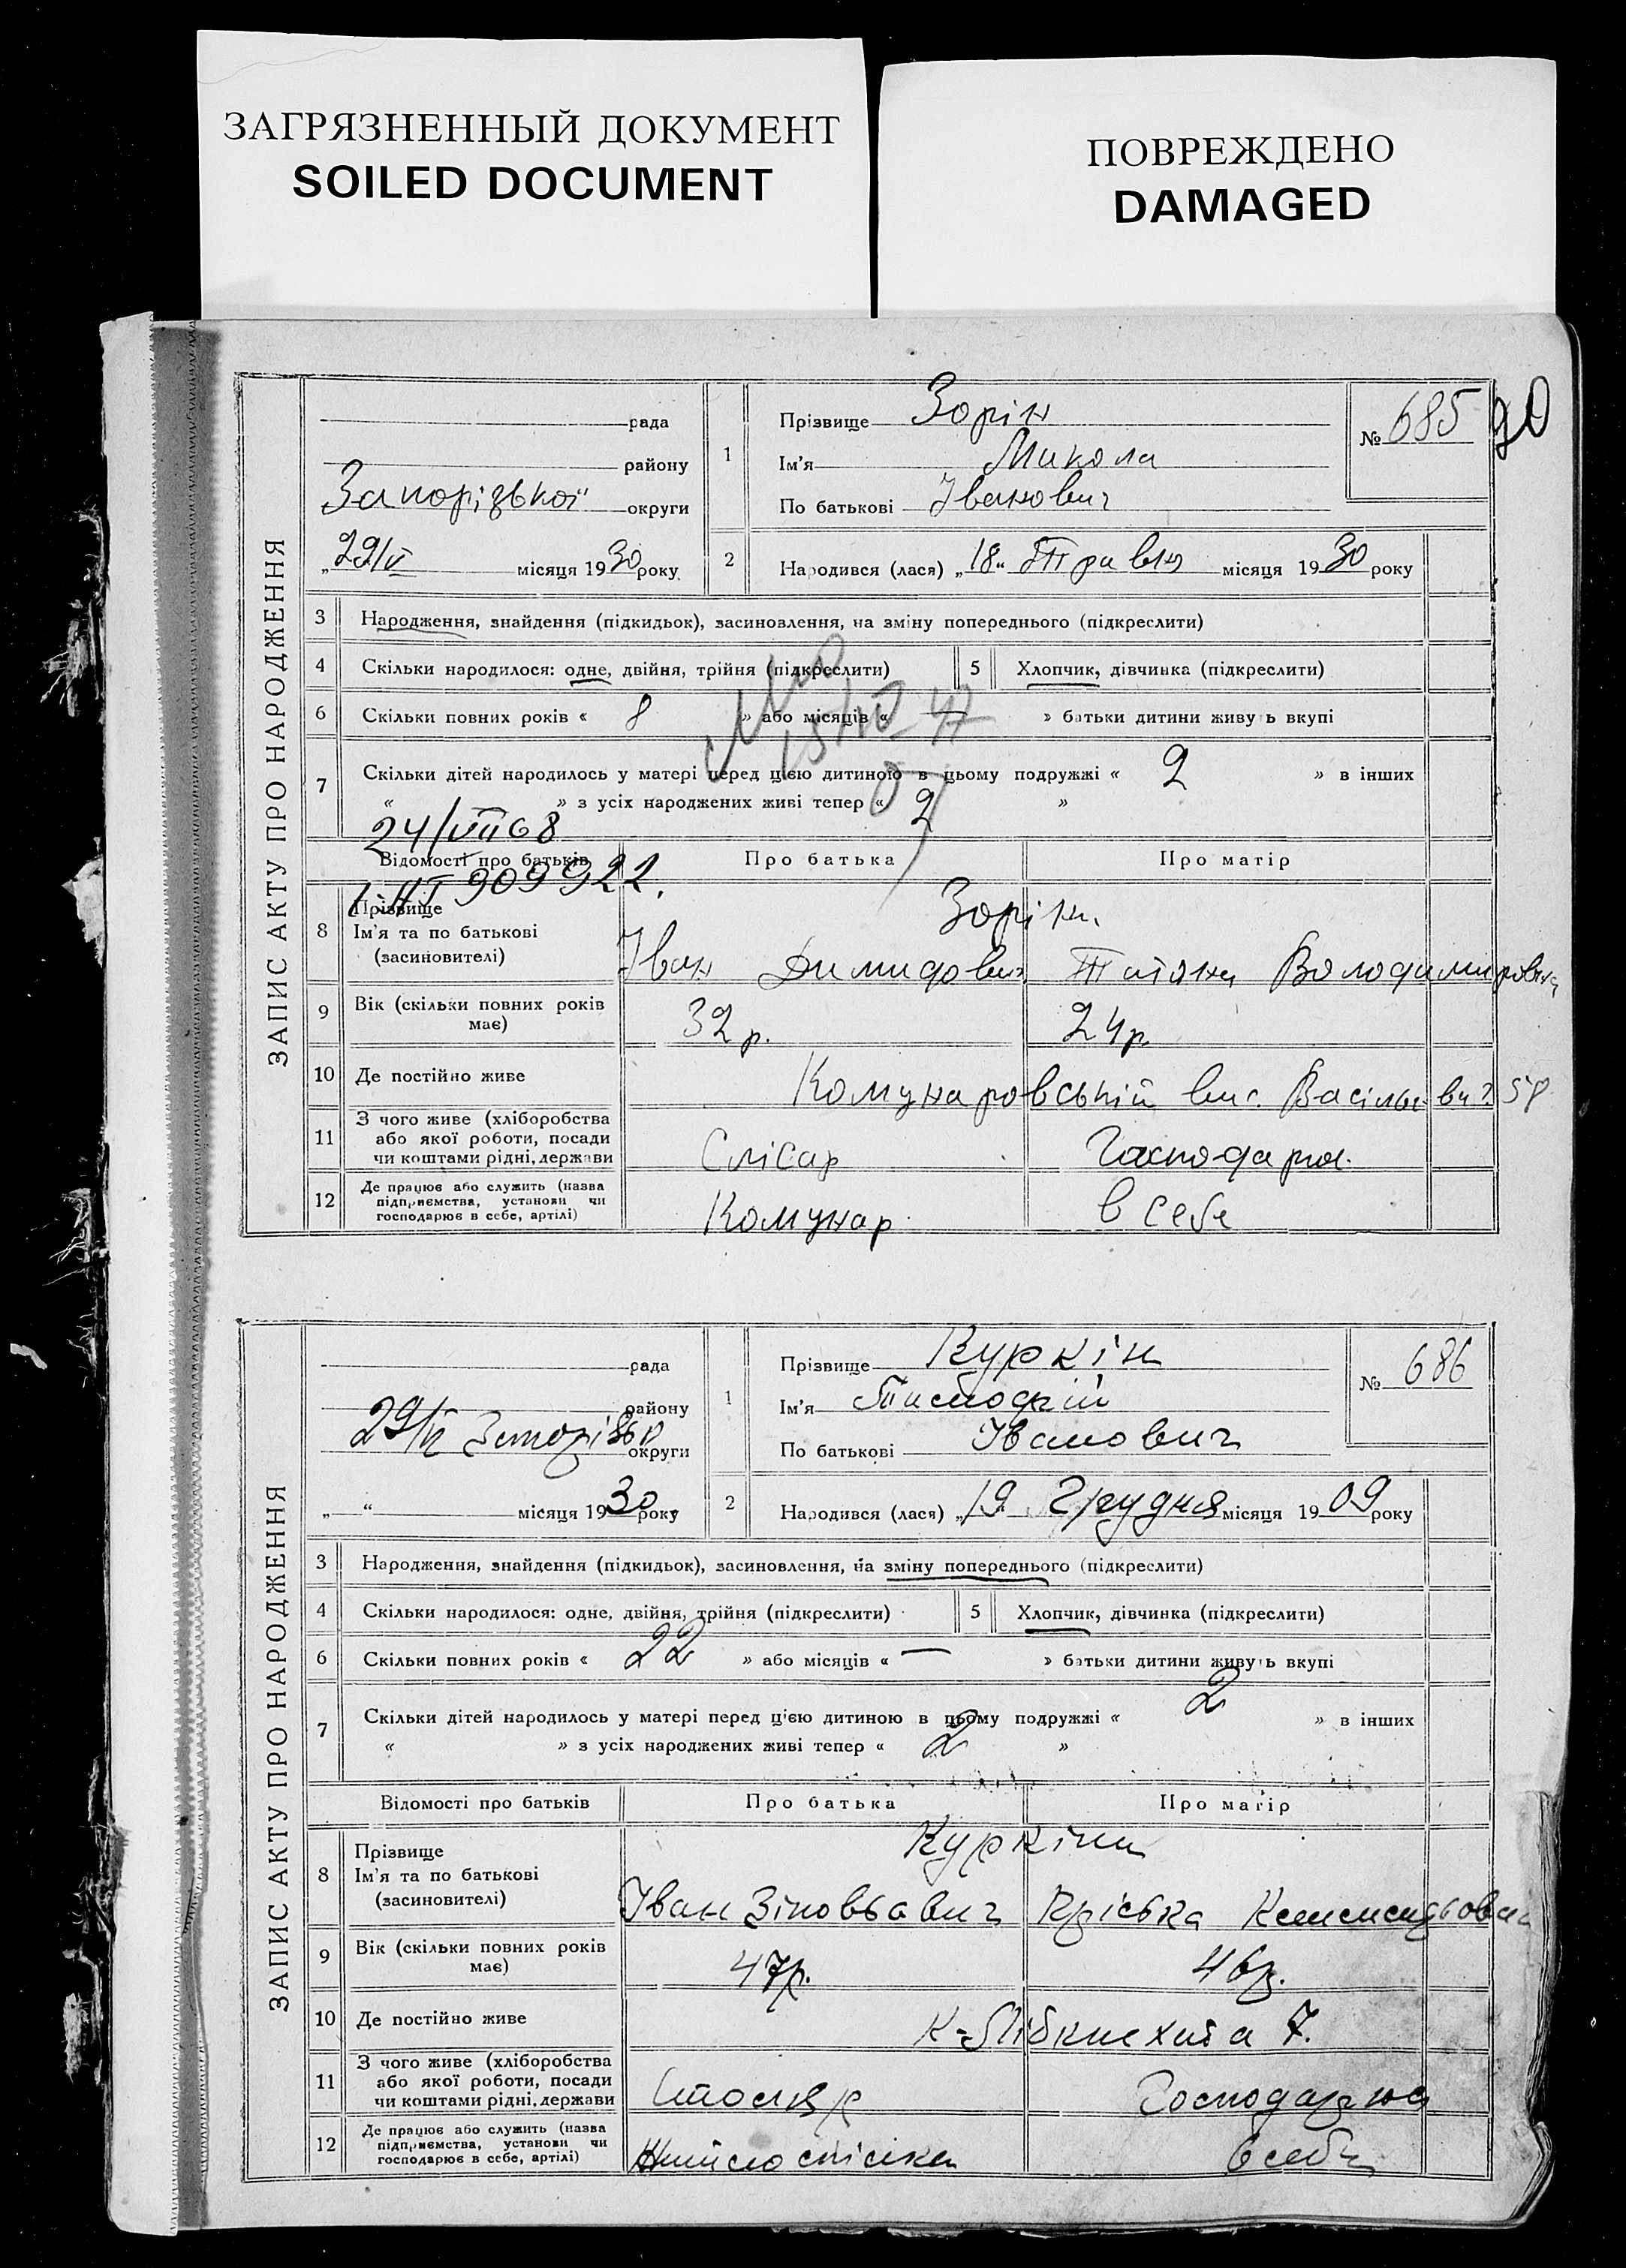 ЗАГРЯЗНЕННЫЙ ДОКУМЕНТ
SOILED DOCUMENT
ПОВРЕЖДЕНО
DAMAGED
90
ЗАПИС АКТУ ПРО НАРОДЖЕННЯ
рада
району
Запорізької округи
„29/V місяця 1930 року
1
Прізвище Зорін
Ім'я Микола
По батькові Іванович
№ 685
2
Народився (лася) „18" Травня місяця 1930 року
3 Народження, знайдення (підкидьок), засиновлення, на зміну попереднього (підкреслити)
4 Скільки народилося: одне, двійня, трійня (підкреслити) 5 Хлопчик, дівчинка (підкреслити)
6 Скільки повних років « 8 » або місяців « — » батьки дитини живуть вкупі
7 Скільки дітей народилось у матері перед цією дитиною в цьому подружжі « 2 » в інших
« » з усіх народжених живі тепер « 2 »
24/VII 68
909922.
Відомості про батьків Про батька Про матір
8 Прізвище
Ім'я та по батькові
(засиновителі)
Зорін.
Іван Димидович Татяна Володимировна
9 Вік (скільки повних років
має)
32 р. 24 р.
10 Де постійно живе Комунаровський вис. Васільевич 58
11 З чого живе (хліборобства
або якої роботи, посади
чи коштами рідні, держави
Слісар Господарня.
12 Де працює або служить (назва
підприємства, установи чи
господарює в себе, артілі)
Комунар в себе
ЗАПИС АКТУ ПРО НАРОДЖЕННЯ
рада
району
29/V округи
„ " місяця 1930 року
1
Прізвище Куркін
Ім'я Тимофій
По батькові Іванович
№ 686
2
Народився (лася) „19 Грудня місяця 1909 року
3 Народження, знайдення (підкидьок), засиновлення, на зміну попереднього (підкреслити)
4 Скільки народилося: одне, двійня, трійня (підкреслити) 5 Хлопчик, дівчинка (підкреслити)
6 Скільки повних років « 22 » або місяців « — » батьки дитини живуть вкупі
7 Скільки дітей народилось у матері перед цією дитиною в цьому подружжі « 2 » в інших
« » з усіх народжених живі тепер « 2 »
Відомості про батьків Про батька Про матір
8 Прізвище
Ім'я та по батькові
(засиновителі)
Куркіни
Іван Зіновьавич Кріська
9 Вік (скільки повних років
має)
47р. 46р.
10 Де постійно живе К-Лібкнехита 7.
11 З чого живе (хліборобства
або якої роботи, посади
чи коштами рідні, держави
Столяр Господарюа
12 Де працює або служить (назва
підприємства, установи чи
господарює в себе, артілі)
Житлоспілка в себе